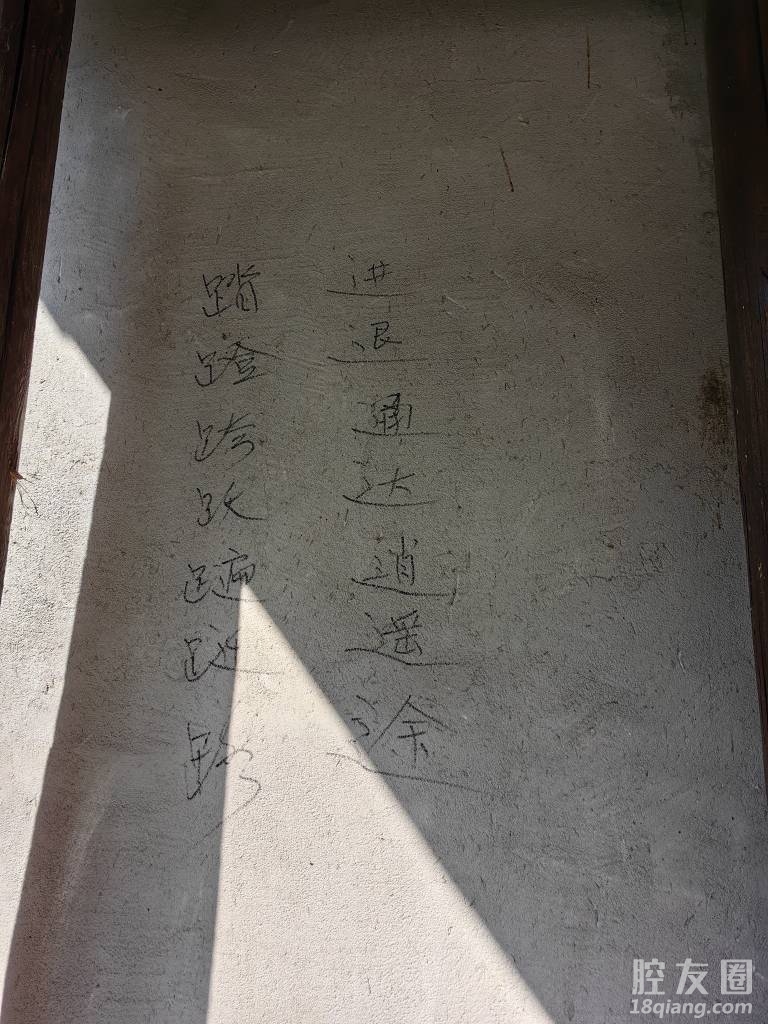 进退通达逍遥途
踏蹬跨跃蹁跹路
腔友圈
18qiang.com